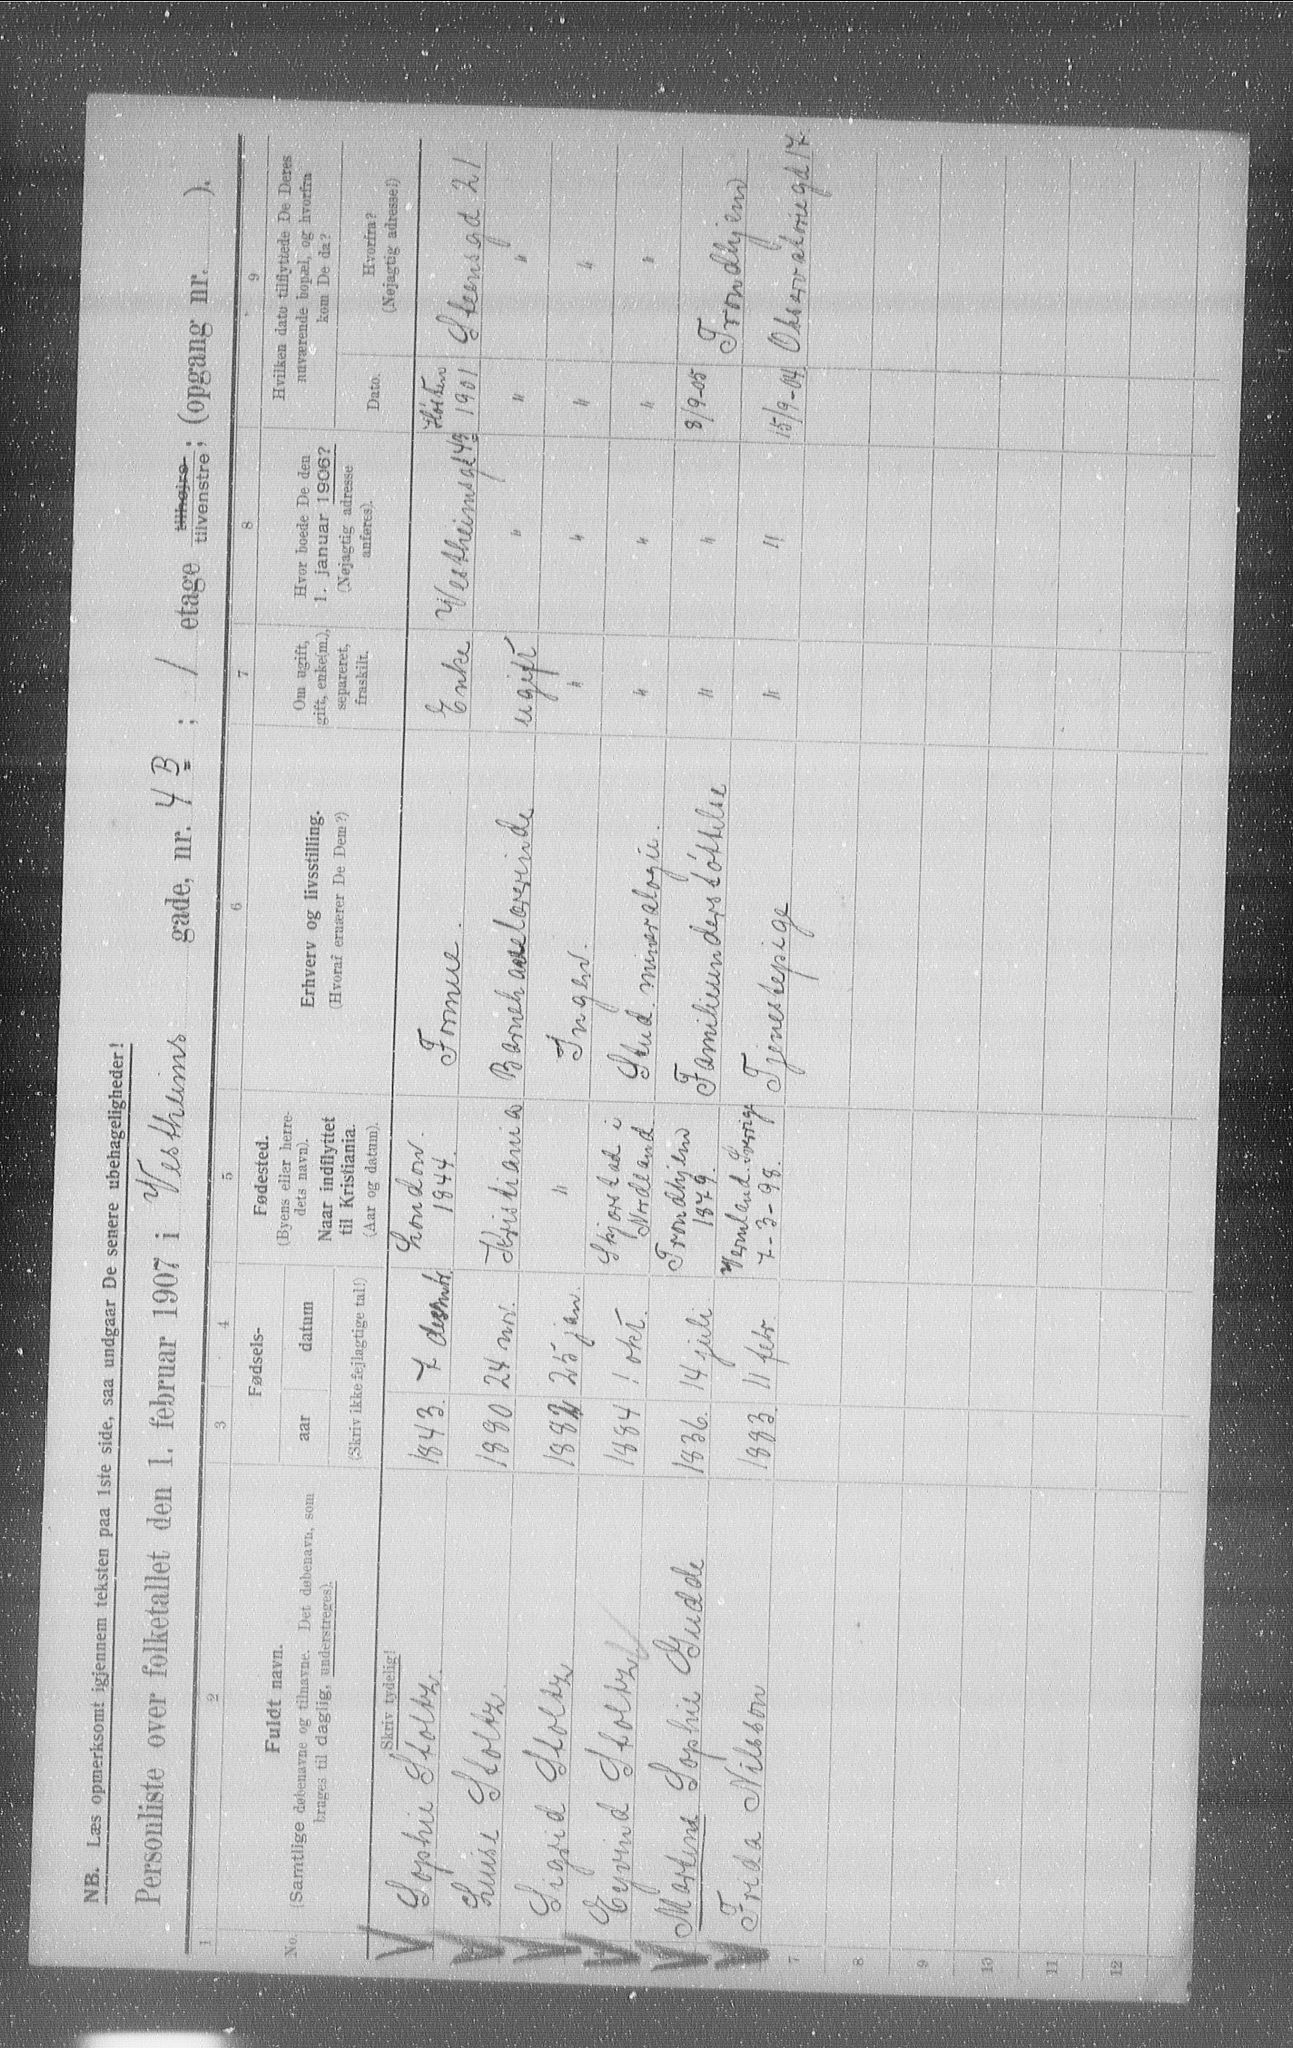 NB. Læs opmerksomt igjennem teksten paa 1ste side, saa undgaar De senere ubehageligheder!
Personliste over folketallet den 1. februar 1907 i Vestheims gade, nr. 4 B ; / etage tilhøjre tilvenstre ; (opgang nr. ).
1 2 3 4 5 6 7 8 9
No.
Fuldt navn.
(Samtlige døbenavne og tilnavne. Det døbenavn, som
bruges til daglig, understreges).
Skriv tydelig!
Fødsels-
aar datum
(Skriv ikke fejlagtige tal!)
Fødested.
(Byens eller herre-
dets navn).
Naar indflyttet
til Kristiania.
(Aar og datum).
Erhverv og livsstilling.
(Hvoraf ernærer De Dem?)
Om ugift,
gift, enke(m.),
separeret,
fraskilt.
Hvor boede De den
1. januar 1906?
(Nøjagtig adresse
anføres).
Hvilken dato tilflyttede De Deres
nuværende bopæl, og hvorfra
kom De da?
Dato.
Hvorfra?
(Nøjagtig adresse!)
Sophie Stoltz. 1843. 7 desembr. London. 1844. Formue. Enke Vestheimsgd 4B Høsten 1901 Steensgd 21
Luise Stoltz 1880 24 nov. Kristiania ugift " " "
Sigrid Stoltz 25 jan. " Ingen. " " " "
Eyvind Stoltz 1884 1 okt. Skjerstad i Nordland Stud. mineralogie. " " " "
Martine Sophie Gudde 1836. 14 juli Trondhjem 1879. Familieunderstøttelse " " 8/9-05 Trondhjem
Frida Nilsson 1883. 11 febr. Vermland. Sverige 7-3-98. Tjenestepige " " 15/9-04 Observatoriegd 17.
7
8
9
10
11
12